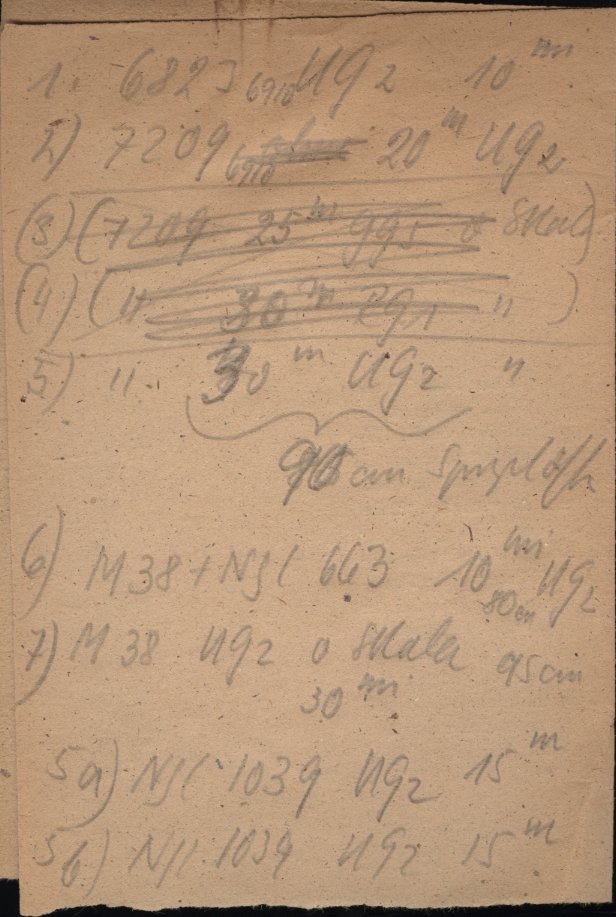 1. 6823 6910 UG2 10 m
2) 7209 6910 20 m UG2
(3) (7209 25 m GG5 o Skala)
(4) (" 30 m " )
5) " 30 m UG2 "
90 cm
6) M38 + NGC 663 10 m UG2
80 cm
7) M38 UG2 o Skala 95 cm
30 m
5a) NGC 1039 UG2 15 m
5b) NGC 1039 UG2 15 m